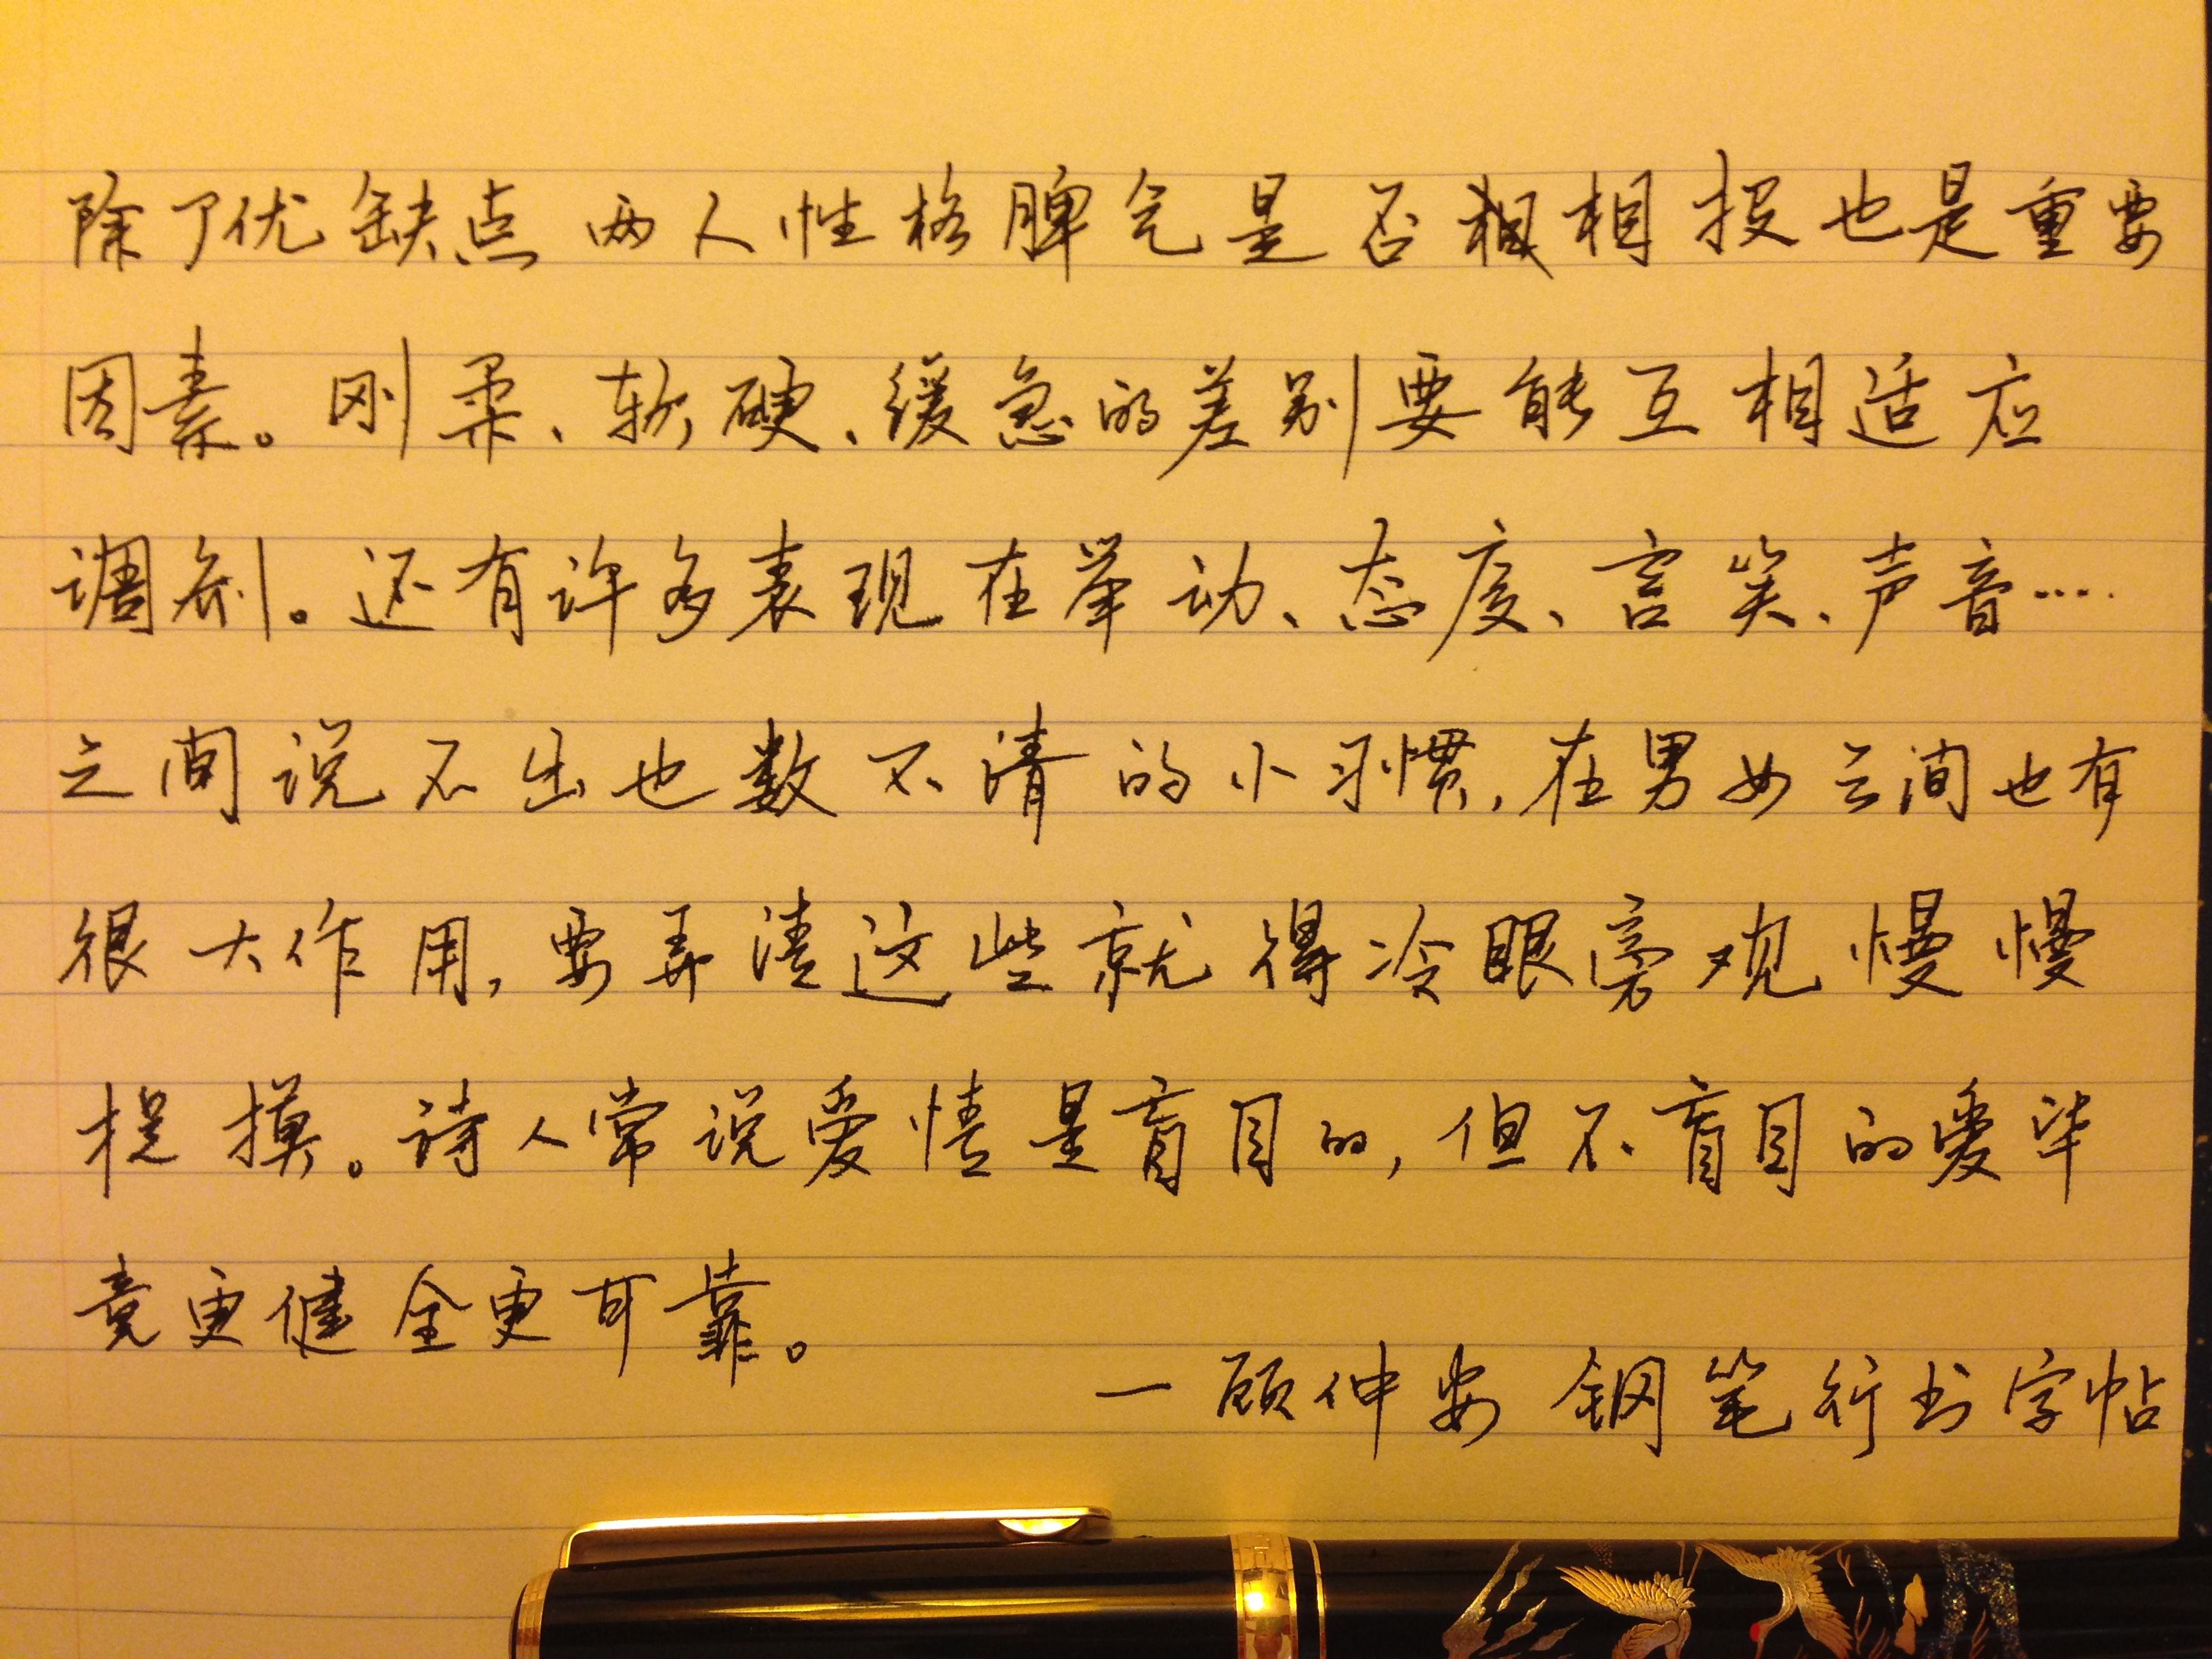 除了优缺点 两人性格脾气是否相相投也是重要
因素。刚柔、软硬、缓急的差别要能互相适应
调剂。还有许多表现在举动、态度、言笑、声音····
之间说不出也数不清的小习惯,在男女之间也有
很大作用,要弄清这些就得冷眼旁观慢慢
捉摸。诗人常说爱情是盲目的,但不盲目的爱毕
竟更健全更可靠。
一顾仲安 钢笔行书字帖